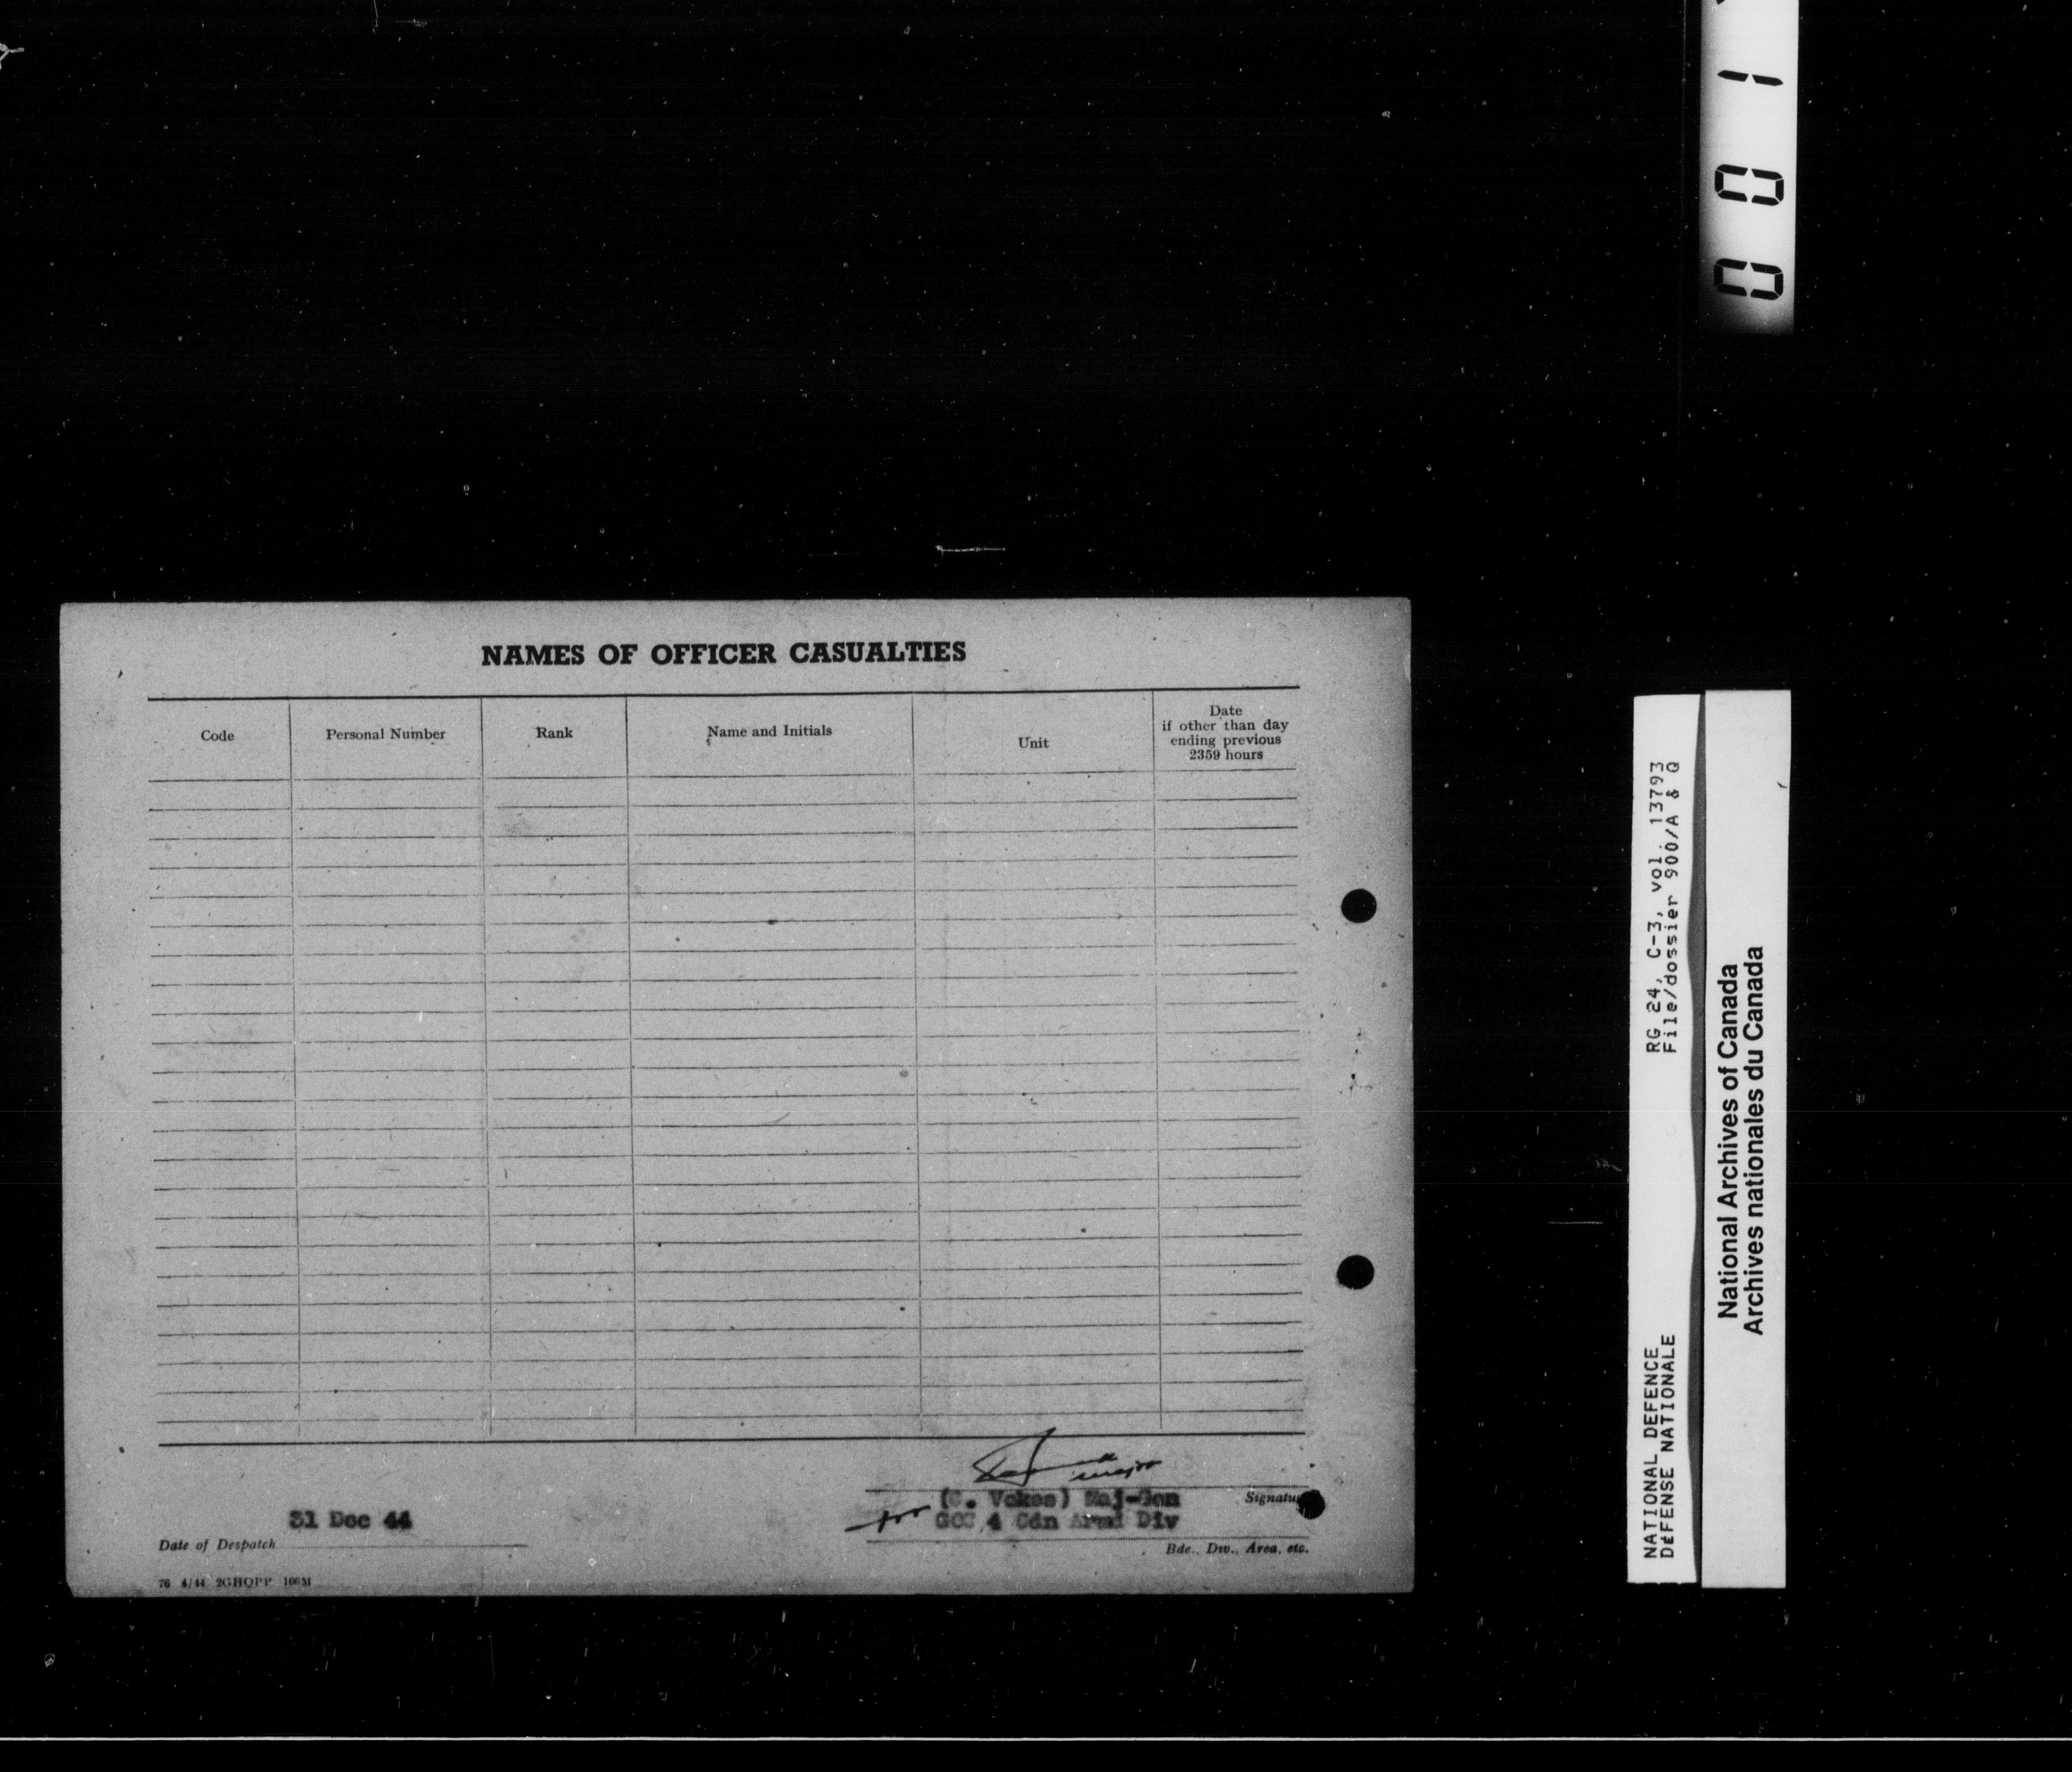 NAMES OF OFFICER CASUALTIES
Code
Personal Number
Rank
Name and Initials
Unit
Date
if other than day
ending previous
2359 hours
major
(C. Vokes) Maj-Gen
Signature
for
GOC 4 Cdn Armd Div
31 Dec 44
Date of Despatch
Bde., Div., Area, etc.
76 4/44 2GHQPP 100M
0 0 1
RG 24, C-3, vol. 13793
File/dossier 900/A & Q
NATIONAL DEFENCE
DéFENSE NATIONALE
National Archives of Canada
Archives nationales du Canada